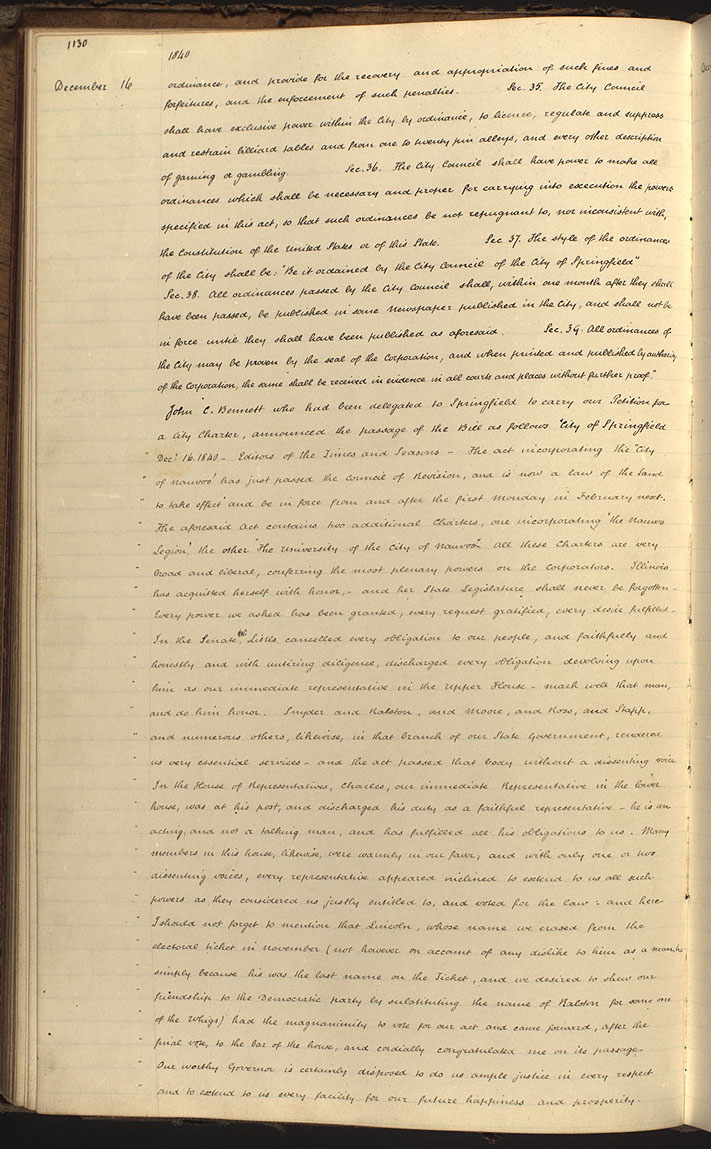 1130
1840
December 16
ordinance, and provide for the recovery and appropriation of such fines and
forfeitures, and the enforcement of such penalties. Sec. 35. The City Council
shall have exclusive power within the City by ordinance, to licence, regulate and suppress
and restrain billiard tables and from one to twenty pin alleys, and every other description
of gaming or gambling. Sec. 36. The City Council shall have power to make all
ordinances which shall be necessary and proper for carrying into execution the powers
specified in this act, so that such ordinances be not repugnant to, nor inconsistent with,
the Constitution of the United States or of this State. Sec 37. The style of the ordinances
of the City shall be: "Be it ordained by the City Council of the City of Springfield"
Sec. 38. All ordinances passed by the City Council shall, within one month after they shall
have been passed, be published in some newspaper published in the City, and shall not be
in force until they shall have been published as aforesaid. Sec. 39. All ordinances of
the City may be proven by the seal of the Corporation, and when printed and published by authority
of the Corporation, the same shall be received in evidence in all courts and places without further proof."
John C. Bennett who had been delegated to Springfield to carry our Petition for
a City Charter, announced the passage of the Bill as follows "City of Springfield
" Decr. 16. 1840 - Editors of the Times and Seasons - The act incorporating the "City
" of Nauvoo' has just passed the Council of Revision, and is now a law of the land
" to take effect and be in force from and after the first Monday in February next.
" The aforesaid Act contains two additional Charters, one incorporating "the Nauvoo
" Legion', the other "The University of the City of Nauvoo". All these Charters are very
" broad and liberal, conferring the most plenary powers on the Corporators. Illinois
" has acquitted herself with honor, - and her State Legislature shall never be forgotten -
" Every power we asked has been granted, every request gratified, every desire fulfilled -
" In the Senate, Mr. Little cancelled every obligation to our people, and faithfully and
" honestly and with untiring diligence, discharged every obligation devolving upon
" him as our immediate representative in the upper House - mark well that man,
" and do him honor. Snyder and Ralston, and Moore, and Ross, and Stapp,
" and numerous others, likewise, in that branch of our State Government, rendered
" us very essential services - and the act passed that body without a dissenting voice
" In the House of Representatives, Charles, our immediate Representative in the lower
" house, was at his post, and discharged his duty as a faithful representative - he is an
" acting, and not a talking man, and has fulfilled all his obligations to us. Many
" members in this house, likewise, were warmly in our favor, and with only one or two
" dissenting voices, every representative appeared inclined to extend to us all such
" powers as they considered us justly entitled to, and voted for the law: and here
" I should not forget to mention that Lincoln, whose name we erased from the
" electoral ticket in November (not however on account of any dislike to him as a man, but
" simply because his was the last name on the Ticket, and we desired to shew our
" friendship to the Democratic party by substituting the name of Ralston for some one
" of the Whigs) had the magnanimity to vote for our act and came forward, after the
" final vote, to the bar of the house, and cordially congratulated me on its passage -
" Our worthy Governor is certainly disposed to do us ample justice in every respect
" and to extend to us every facility for our future happiness and prosperity.